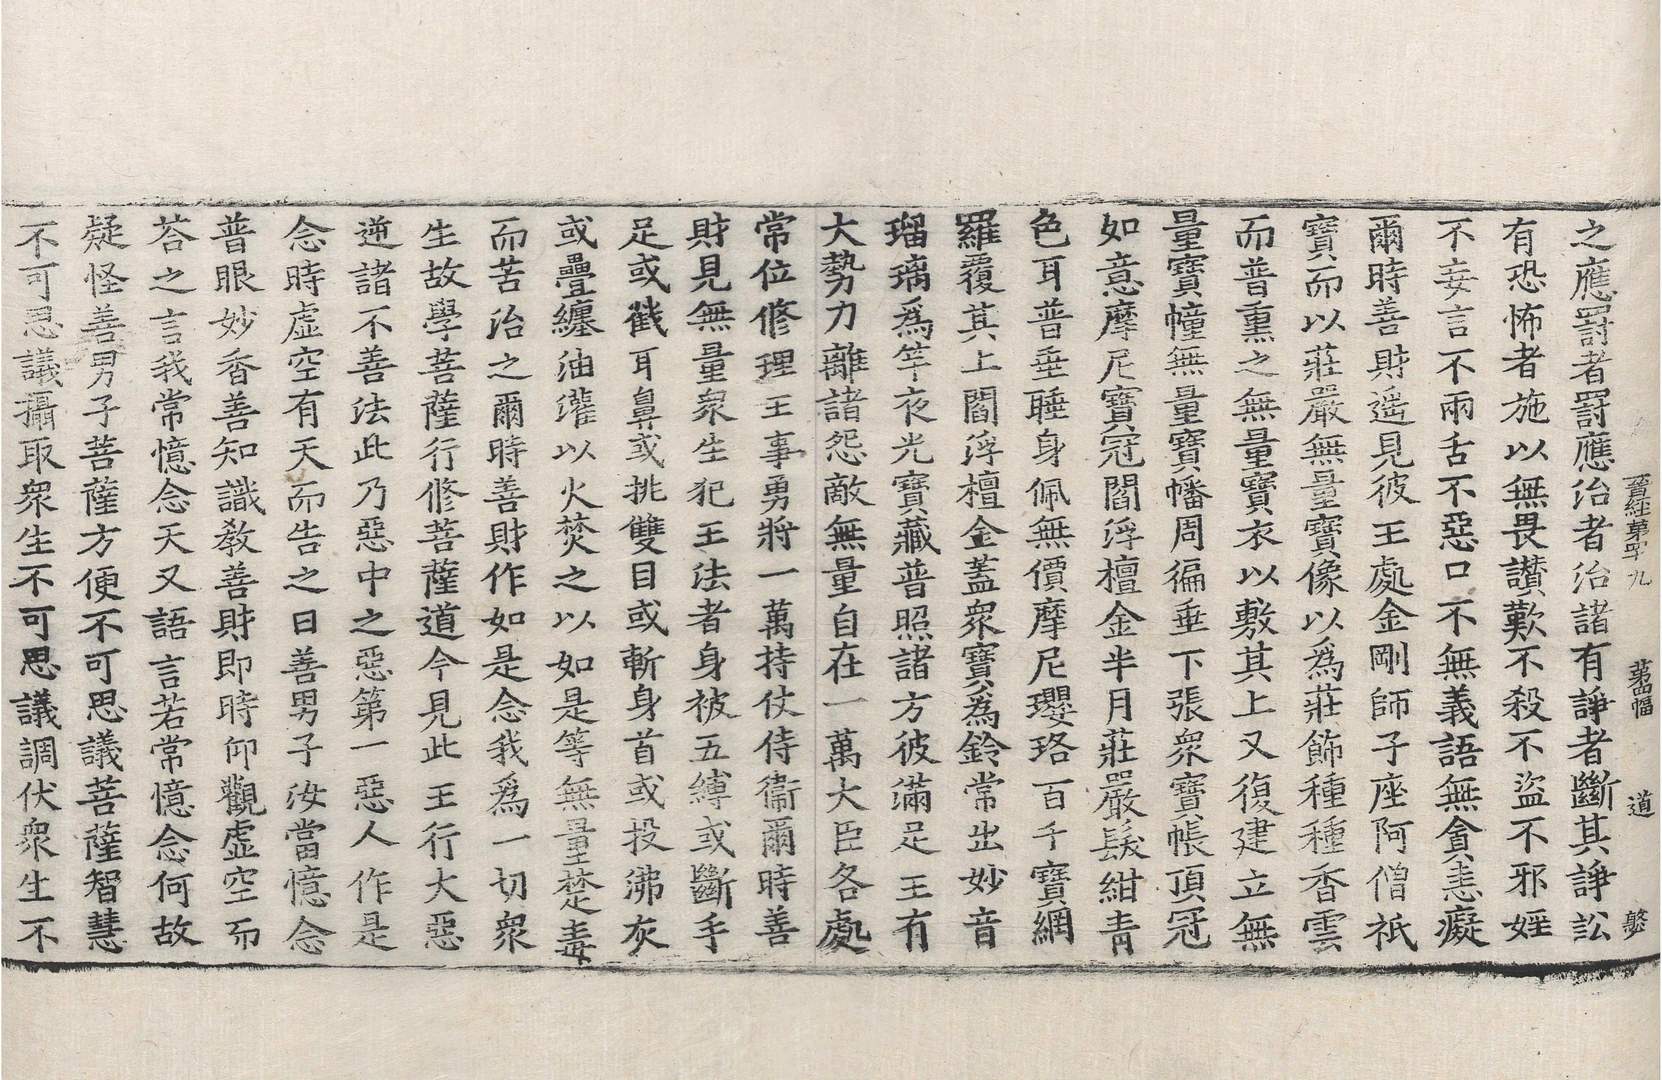 晉經第四十九 第四幅 道 慜
之應罰者罰應治者治諸有諍者斷其諍訟
有恐怖者施以無畏讃歎不殺不盜不邪婬
不妄言不兩舌不惡口不無義語無貪恚癡
爾時善財遥見彼王處金剛師子座阿僧祇
寶而以莊嚴無量寶像以爲莊飾種種香雲
而普熏之無量寶衣以敷其上又復建立無
量寶幢無量寶幡周徧垂下張衆寶帳頂冠
如意摩尼寶冠閻浮檀金半月莊嚴髮紺青
色耳普垂睡身佩無價摩尼瓔珞百千寶網
羅覆其上閻浮檀金蓋衆寶爲鈴常出妙音
瑠璃爲竿夜光寶藏普照諸方彼滿足王有
大勢力離諸怨敵無量自在一萬大臣各處
常位修理王事勇將一萬持仗侍衞爾時善
財見無量衆生犯王法者身被五縛或斷手
足或截耳鼻或挑雙目或斬身首或投沸灰
或疊纏油灌以火焚之以如是等無量楚毒
而苦治之爾時善財作如是念我爲一切衆
生故學菩薩行修菩薩道今見此王行大惡
逆諸不善法此乃惡中之惡第一惡人作是
念時虛空有天而告之曰善男子汝當憶念
普眼妙香善知識教善財即時仰觀虛空而
荅之言我常憶念天又語言若常憶念何故
疑怪善男子菩薩方便不可思議菩薩智慧
不可思議攝取衆生不可思議調伏衆生不